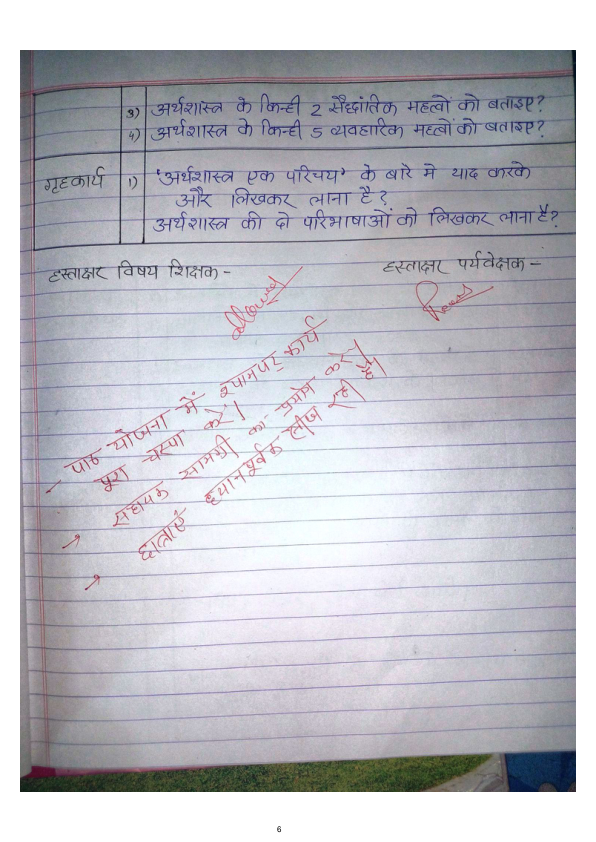 3) अर्थशास्त्र के किन्ही 2 सैद्धांतिक महत्वों को बताइए?
4) अर्थशास्त्र के किन्ही 5 व्यवहारिक महत्वों को बताइए?
गृहकार्य 1) 'अर्थशास्त्र एक परिचय' के बारे मे याद करके
और लिखकर लाना है?
अर्थशास्त्र की दो परिभाषाओं को लिखकर लाना है?
हस्ताक्षर विषय शिक्षक - हस्ताक्षर पर्यवेक्षक -
allowed
- पाठ योजना में श्यामपट्ट कार्य
पूरा चस्पा करें।
→ सहायक सामग्री का प्रयोग करें।
→ छात्राएं ध्यानपूर्वक सीख रही हैं।
6